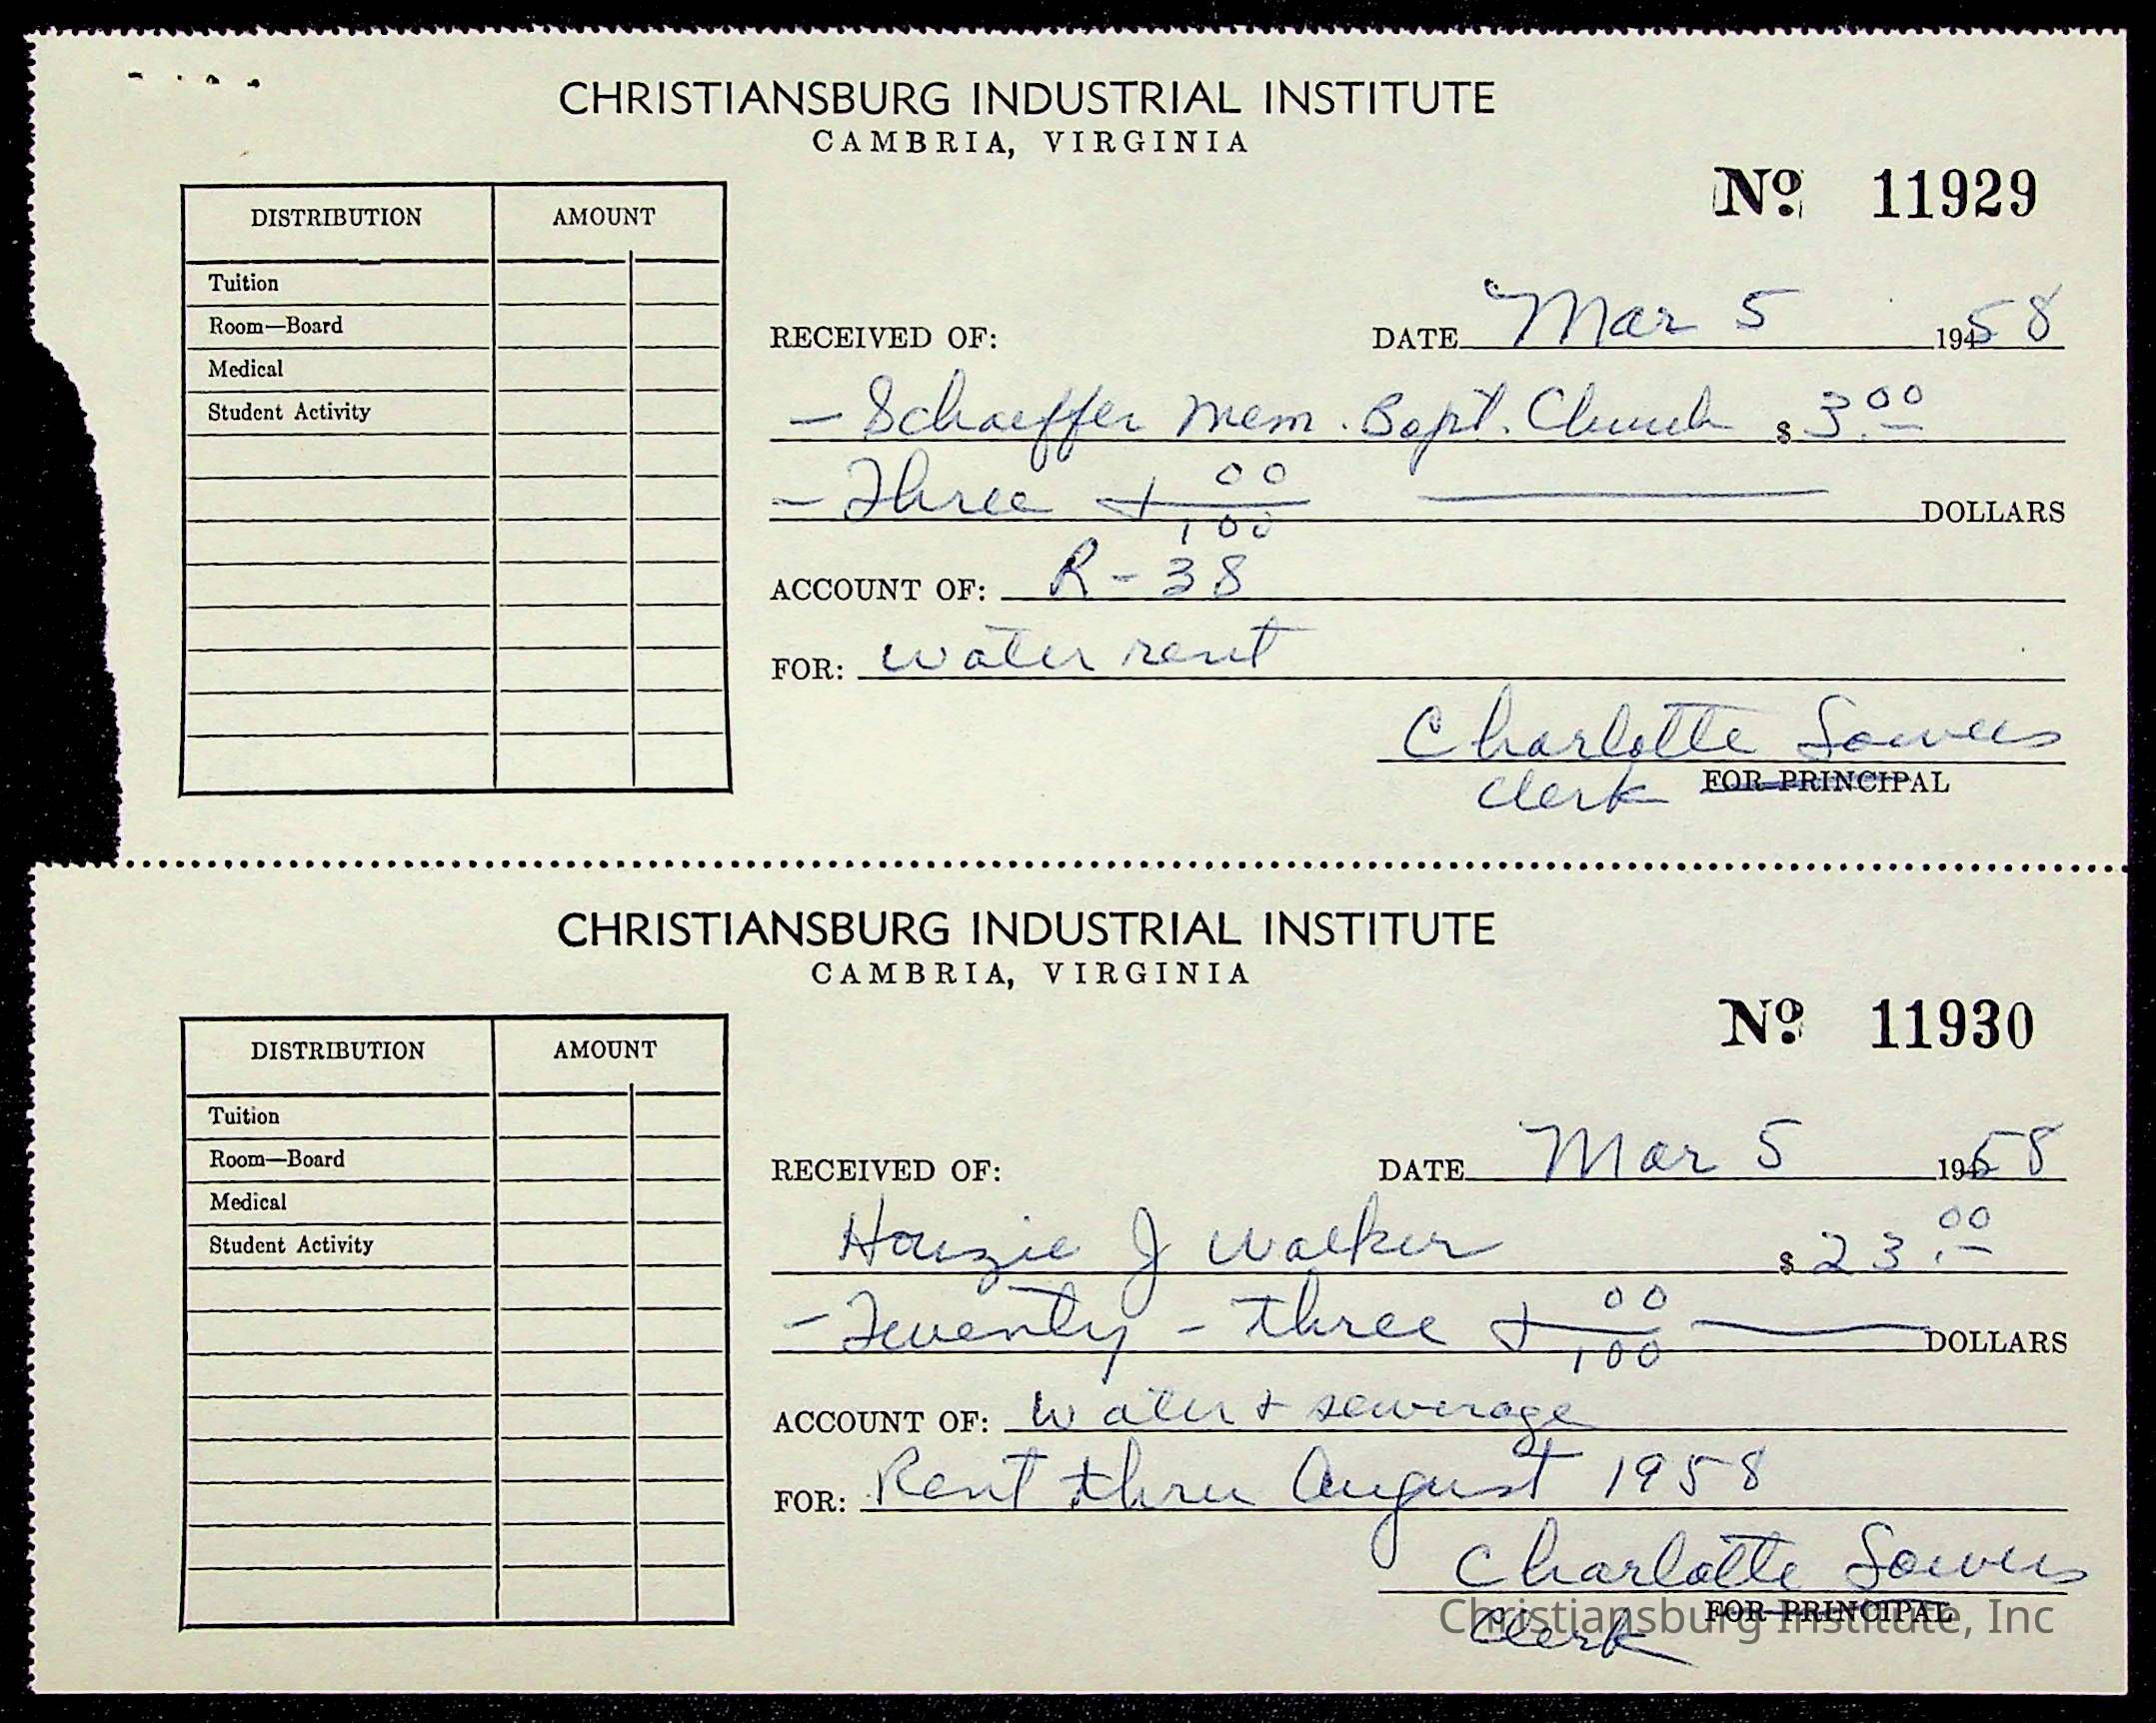 CHRISTIANSBURG INDUSTRIAL INSTITUTE
CAMBRIA, VIRGINIA
No 11929
DISTRIBUTION AMOUNT
Tuition
Room—Board
Medical
Student Activity
RECEIVED OF: DATE Mar 5 19458
- Schaeffer Mem. Bapt. Church $ 3.00
- Three + 00/100 DOLLARS
ACCOUNT OF: R-38
FOR: water rent
Charlotte Sowers
Clerk FOR PRINCIPAL
CHRISTIANSBURG INDUSTRIAL INSTITUTE
CAMBRIA, VIRGINIA
No 11930
DISTRIBUTION AMOUNT
Tuition
Room—Board
Medical
Student Activity
RECEIVED OF: DATE Mar 5 19458
J Walker $ 23.00
- Twenty - three + 00/100 DOLLARS
ACCOUNT OF: Water + sewerage
FOR: Rent thru August 1958
Charlotte Sowers
Clerk FOR PRINCIPAL
Christiansburg Institute, Inc